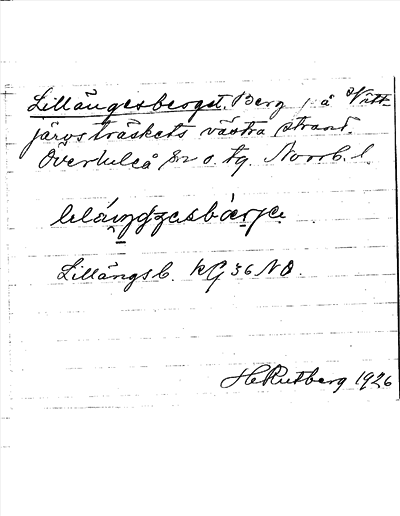 Lillängesberget. Berg å Vitt-
järvsträskets västra strand.
Överluleå sn o. tg. Norrb. l.
Lillängsb. KG 36 NO.
H Rutberg 1926